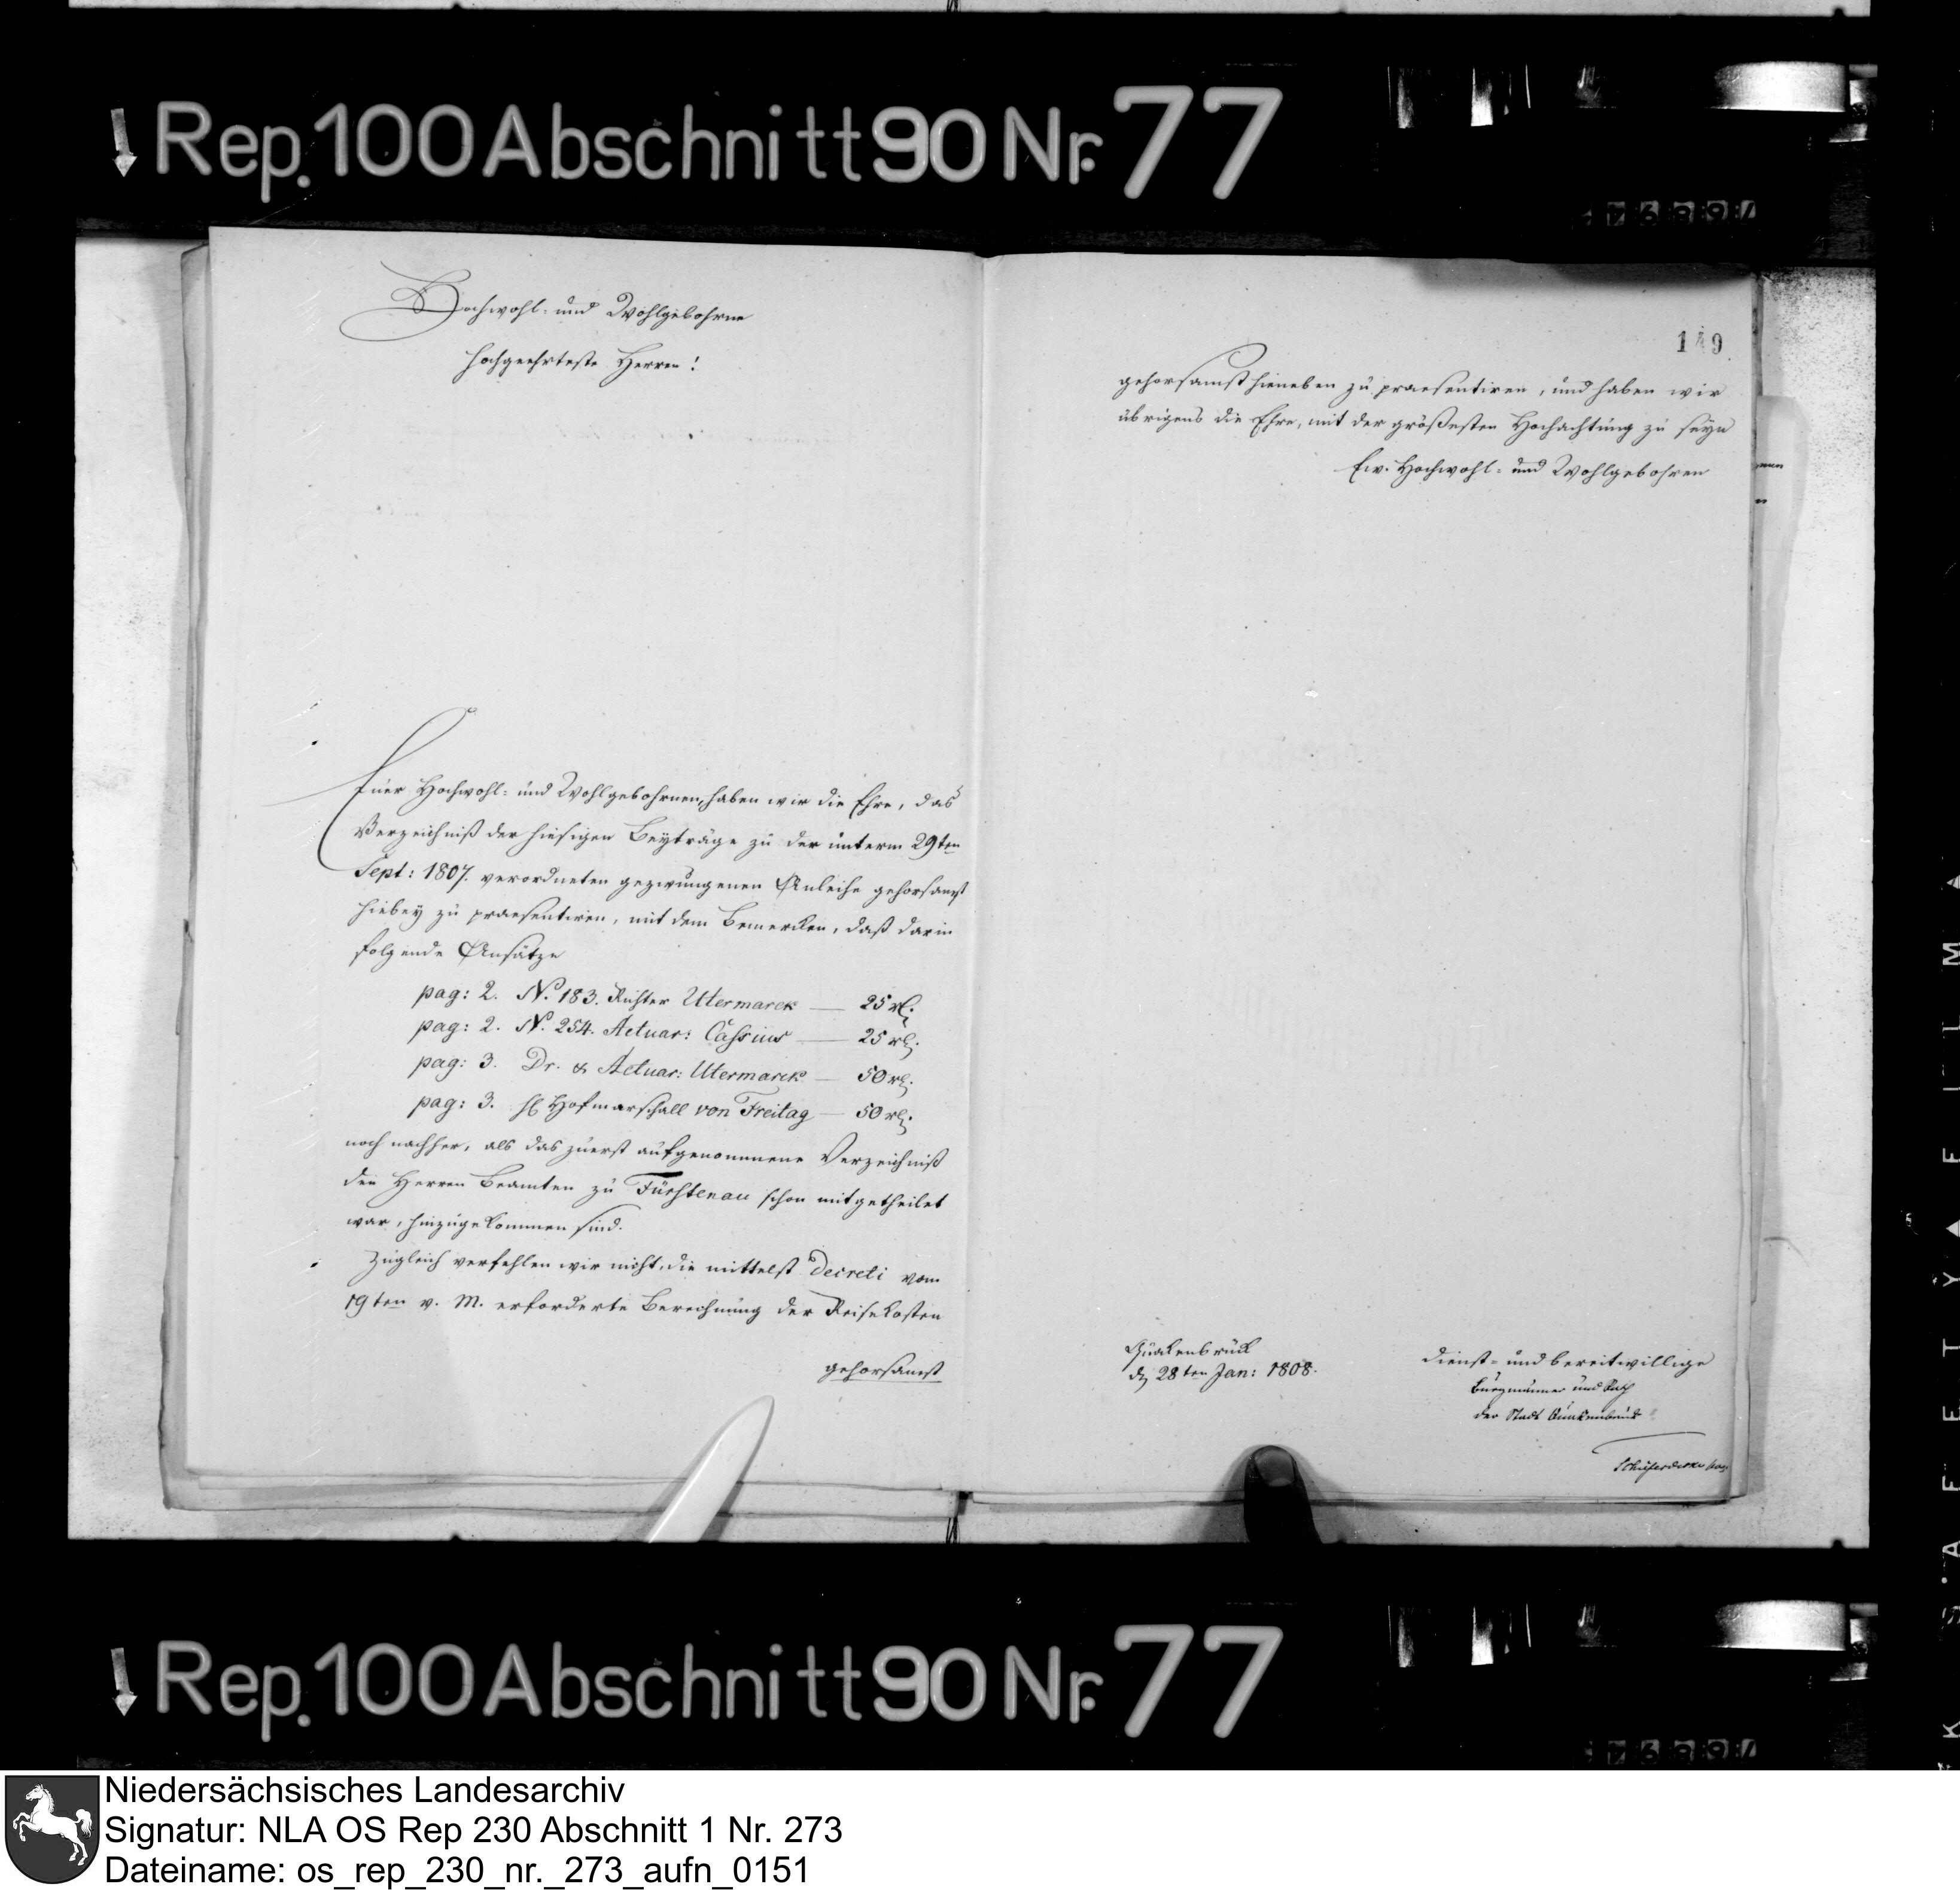 Rep. 100 Abschnitt 90 Nr. 77
Hochwohl- und Wohlgebohrne
Hochgeehrteste Herren!
Euer Hochwohl- und Wohlgebohrnen, haben wir die Ehre, das
Verzeichniß der hiesigen Beyträge zu der unterm 29ten
Sept: 1807. verordneten gezwungenen Anleihe gehorsamst
hiebey zu praesentiren, mit dem Bemerken, daß darin
folgende Ansätze
pag: 2. N. 183. Richter Utermarck — 25 rl.
pag: 2. N. 254. Actuar: Cassius — 25 rl.
pag: 3. Dr. & Actuar: Utermarck — 50 rl.
pag: 3. H. Hofmarschall von Freitag — 50 rl.
noch nachher, als das zuerst aufgenommene Verzeichniß
den Herren Beamten zu Fürstenau schon mitgetheilet
war, hinzugekommen sind.
Zugleich verfehlen wir nicht, die mittelst Decreti vom
19ten v. M. erforderte Berechnung der Reisekosten
gehorsamst
149
gehorsamst hieneben zu praesentiren, und haben wir
übrigens die Ehre, mit der größesten Hochachtung zu seyn
Ew. Hochwohl- und Wohlgebohren
Quakenbrück
d. 28ten Jan: 1808.
dienst- und bereitwillige
Burgmänner und Rath
der Stadt Quakenbrück
Rep. 100 Abschnitt 90 Nr. 77
Niedersächsisches Landesarchiv
Signatur: NLA OS Rep 230 Abschnitt 1 Nr. 273
Dateiname: os_rep_230_nr._273_aufn_0151